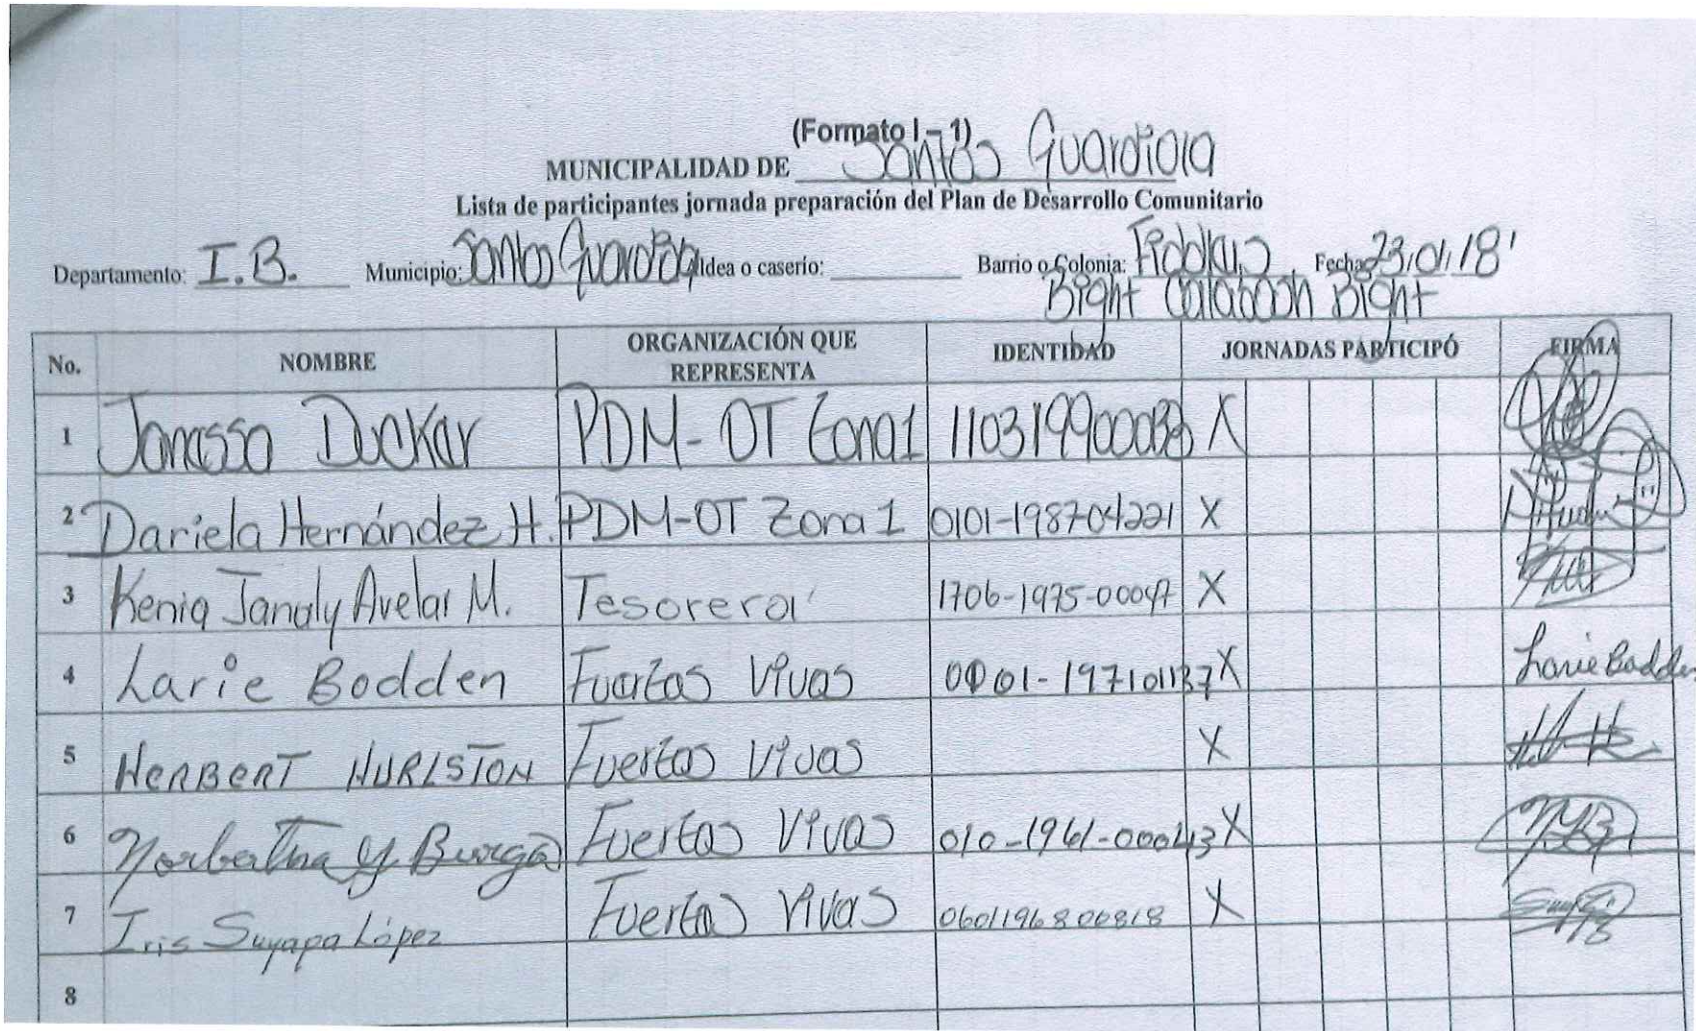 (Formato I – 1)
MUNICIPALIDAD DE Santos Guardiola
Lista de participantes jornada preparación del Plan de Desarrollo Comunitario
Departamento: I.B. Municipio: Santos Guardiola Aldea o caserío: Barrio o Colonia: Fecha: 23/01/18
Bight Calabash Bight
No. NOMBRE ORGANIZACIÓN QUE REPRESENTA IDENTIDAD JORNADAS PARTICIPÓ FIRMA
1 PDM-OT Zona 1 X
2 Dariela Hernández H. PDM-OT Zona 1 0101-198704221 X
3 Kenia Janaly Avelar M. Tesorera X
4 Larie Bodden Fuerzas Vivas X Larie Bodden
5 HERBERT HURLSTON Fuerzas Vivas X
6 Norbertina Y Fuerzas Vivas X
7 Iris Suyapa López Fuerzas Vivas 0601196800818 X
8